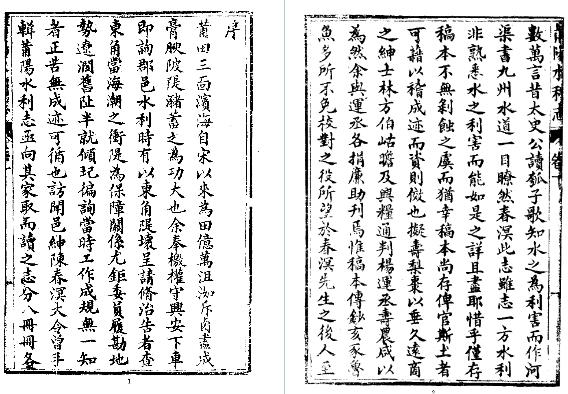 序
莆田三面濱海自宋以來為田億萬沮洳斥鹵盡成
膏腴陂隄豬蓄之為功大也余奉檄權守興安下車
即詢郡邑水利時有以東角隄壞呈請脩治告者查
東角當海潮之衝隄為保障關係尤鉅委員履勘地
勢遼濶舊阯半就傾圮徧詢當時工作成規無一知
者正苦無成迹可循也訪聞邑紳陳春溟大令曾手
輯莆陽水利志亟向其家取而讀之志分八冊冊各
數萬言昔太史公讀瓠子歌知水之為利害而作河
渠書九州水道一目瞭然春溟此志雖志一方水利
非熟悉水之利害而能如是之詳且盡耶惜乎僅存
稿本不無剝蝕之虞而猶幸稿本尚存俾官斯土者
可藉以稽成迹而資則倣也擬壽梨棗以垂久遠商
之紳士林方伯岵瞻及興糧通判楊運丞壽農咸以
為然余與運丞各捐廉助刊焉惟稿本傳鈔亥豕魯
魚多所不免校對之役所望於春溟先生之後人至